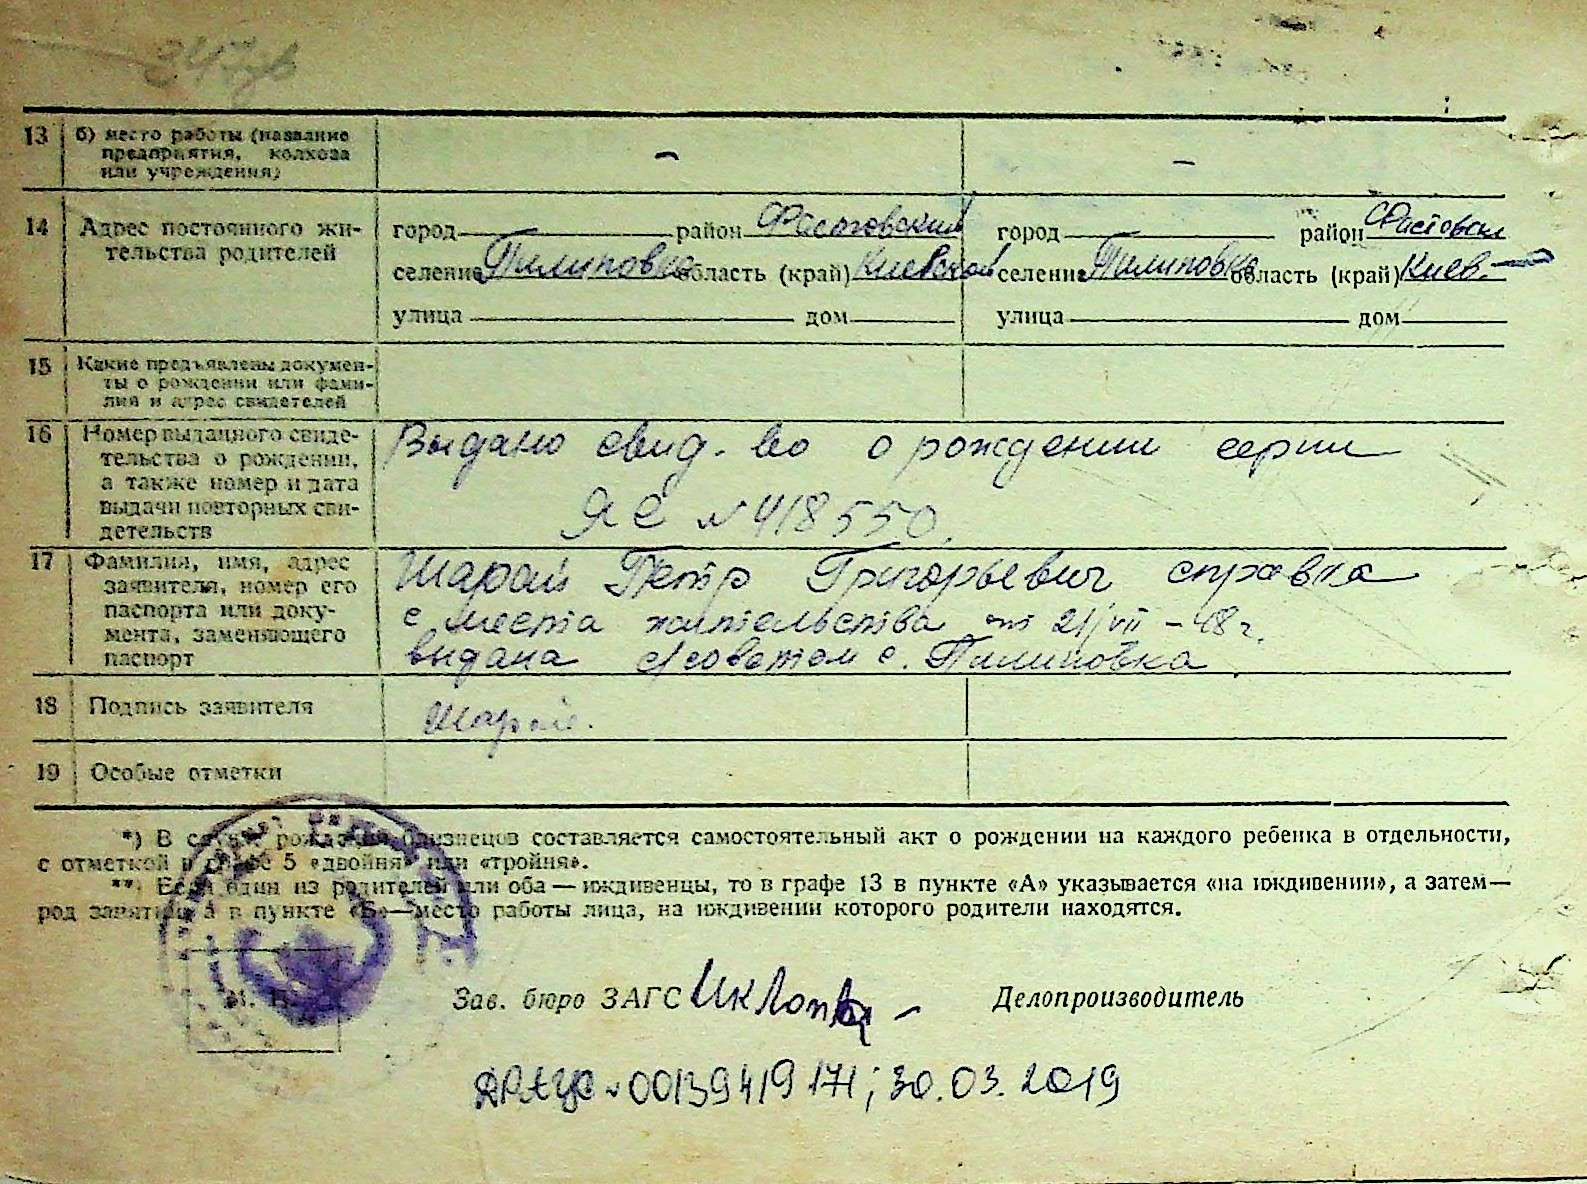 13 б) место работы (название
предприятия, колхоза
или учреждения)
— —
14 Адрес постоянного жи-
тельства родителей
город район Фастовский город район Фастовский
селение Пилиповка область (край) Киевская селение Пилиповка область (край) Киев.
улица дом улица дом
15 Какие предъявлены докумен-
ты о рождении или фами-
лия и адрес свидетелей
16 Номер выданного свиде-
тельства о рождении,
а также номер и дата
выдачи повторных сви-
детельств
Выдано свид-во о рождении серии
ЯЕ № 418550.
17 Фамилия, имя, адрес
заявителя, номер его
паспорта или доку-
мента, заменяющего
паспорт
Шарай Петр Григорьевич справка
с места жительства от 21/VII-48 г.
выдана с/советом с. Пилиповка
18 Подпись заявителя
Шарай.
19 Особые отметки
*) В случае рождения близнецов составляется самостоятельный акт о рождении на каждого ребенка в отдельности,
с отметкой в графе 5 «двойня» или «тройня».
**) Если один из родителей или оба — иждивенцы, то в графе 13 в пункте «А» указывается «на иждивении», а затем—
род занятий, а в пункте «Б»—место работы лица, на иждивении которого родители находятся.
М. П.
Зав. бюро ЗАГС Делопроизводитель
ДРАЦС № 00139419171; 30.03.2019